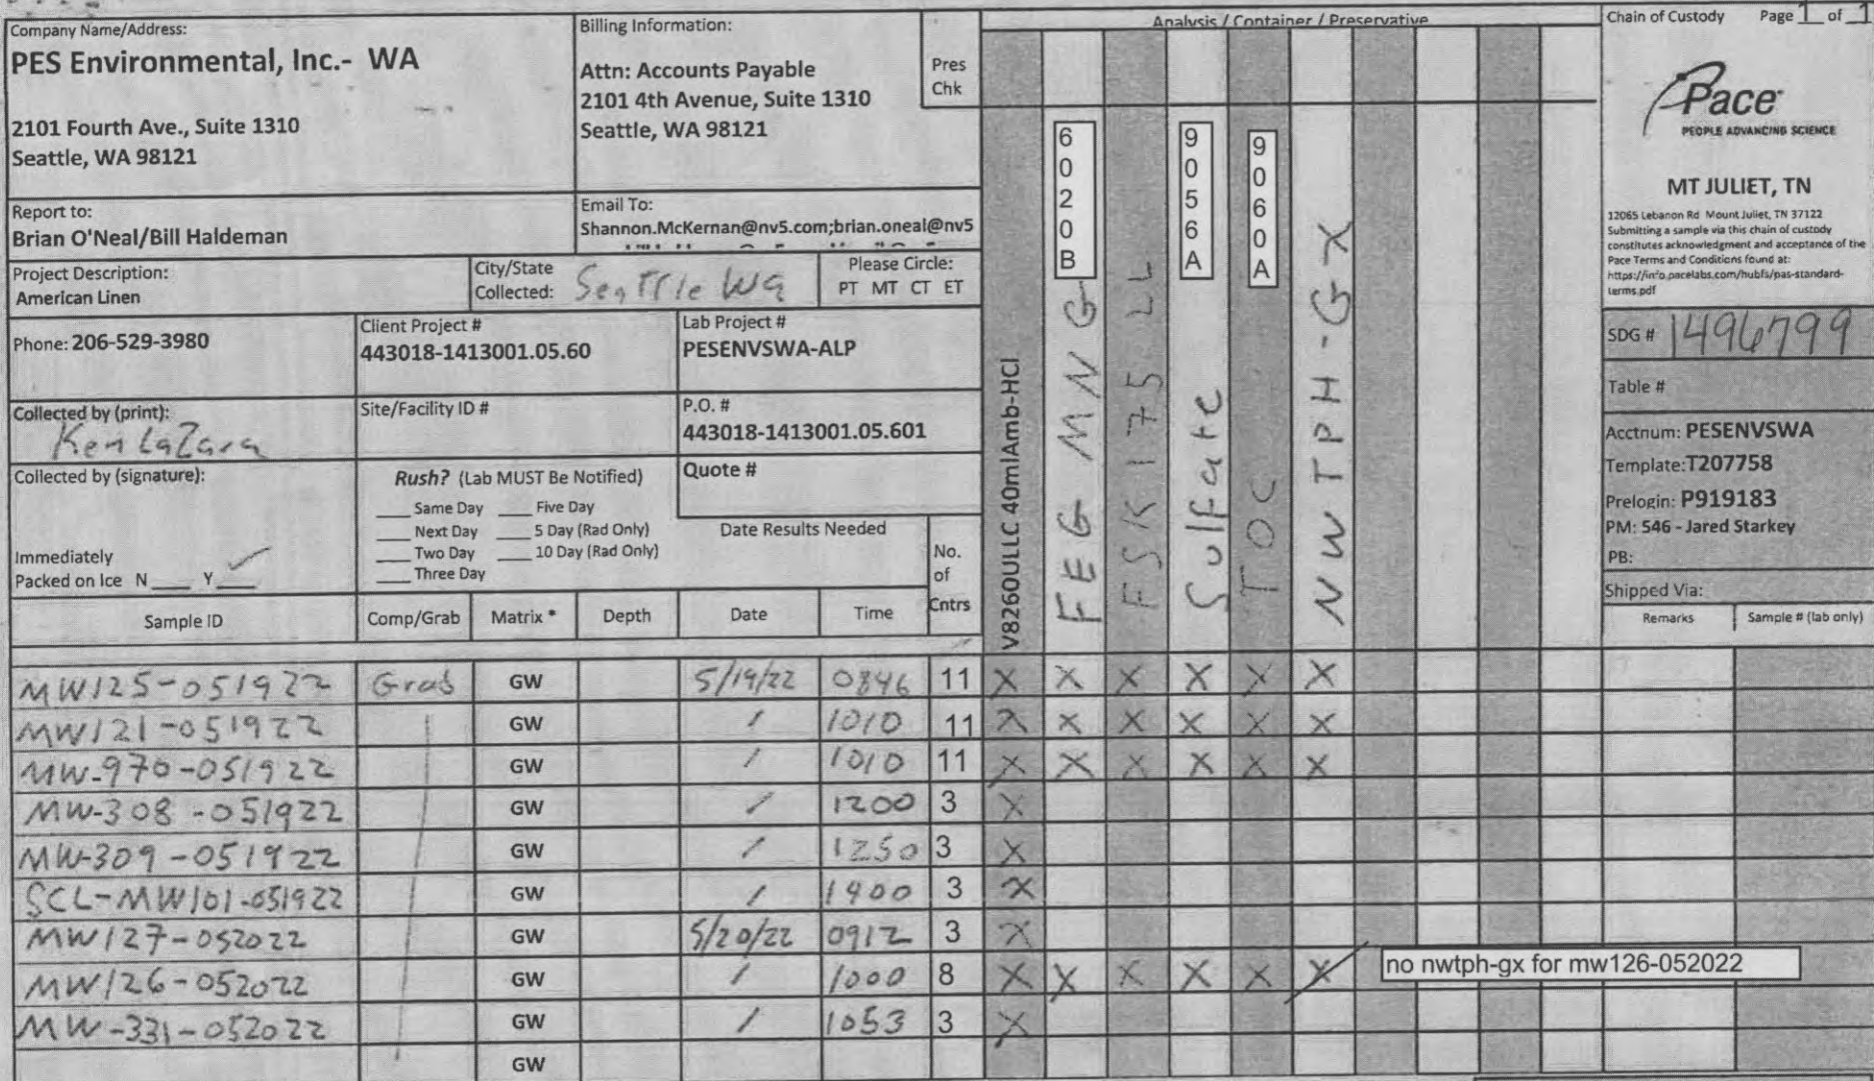 Company Name/Address:
PES Environmental, Inc.- WA
2101 Fourth Ave., Suite 1310
Seattle, WA 98121
Billing Information:
Attn: Accounts Payable
2101 4th Avenue, Suite 1310
Seattle, WA 98121
Pres
Chk
Analysis / Container / Preservative
Chain of Custody Page 1 of 1
Pace
PEOPLE ADVANCING SCIENCE
MT JULIET, TN
12065 Lebanon Rd Mount Juliet, TN 37122
Submitting a sample via this chain of custody
constitutes acknowledgment and acceptance of the
Pace Terms and Conditions found at:
https://info.pacelabs.com/hubfs/pas-standard-
terms.pdf
Report to:
Brian O'Neal/Bill Haldeman
Email To:
Shannon.McKernan@nv5.com;brian.oneal@nv5
Project Description:
American Linen
City/State
Collected: Seattle WA
Please Circle:
PT MT CT ET
Phone: 206-529-3980
Client Project #
443018-1413001.05.60
Lab Project #
PESENVSWA-ALP
Collected by (print):
Ken LaZara
Site/Facility ID #
P.O. #
443018-1413001.05.601
Collected by (signature):
Rush? (Lab MUST Be Notified)
___ Same Day ___ Five Day
___ Next Day ___ 5 Day (Rad Only)
___ Two Day ___ 10 Day (Rad Only)
___ Three Day
Quote #
Date Results Needed
Immediately
Packed on Ice N ___ Y ___
No.
of
Cntrs
V8260ULLC 40mlAmb-HCl
FEG MN G 6020B
Sulfate 9056A
TOC 9060A
NWTPH-GX
SDG # 1496799
Table #
Acctnum: PESENVSWA
Template:T207758
Prelogin: P919183
PM: 546 - Jared Starkey
PB:
Shipped Via:
Sample ID Comp/Grab Matrix * Depth Date Time Remarks Sample # (lab only)
MW125-051922 Grab GW 5/19/22 0846 11 X X X X X X
MW121-051922 GW / 1010 11 X X X X X X
MW-970-051922 GW / 1010 11 X X X X X X
MW-308-051922 GW / 1200 3 X
MW-309-051922 GW / 1250 3 X
SCL-MW101-051922 GW / 1400 3 X
MW127-052022 GW 5/20/22 0912 3 X
MW126-052022 GW / 1000 8 X X X X X X no nwtph-gx for mw126-052022
MW-331-052022 GW / 1053 3 X
GW